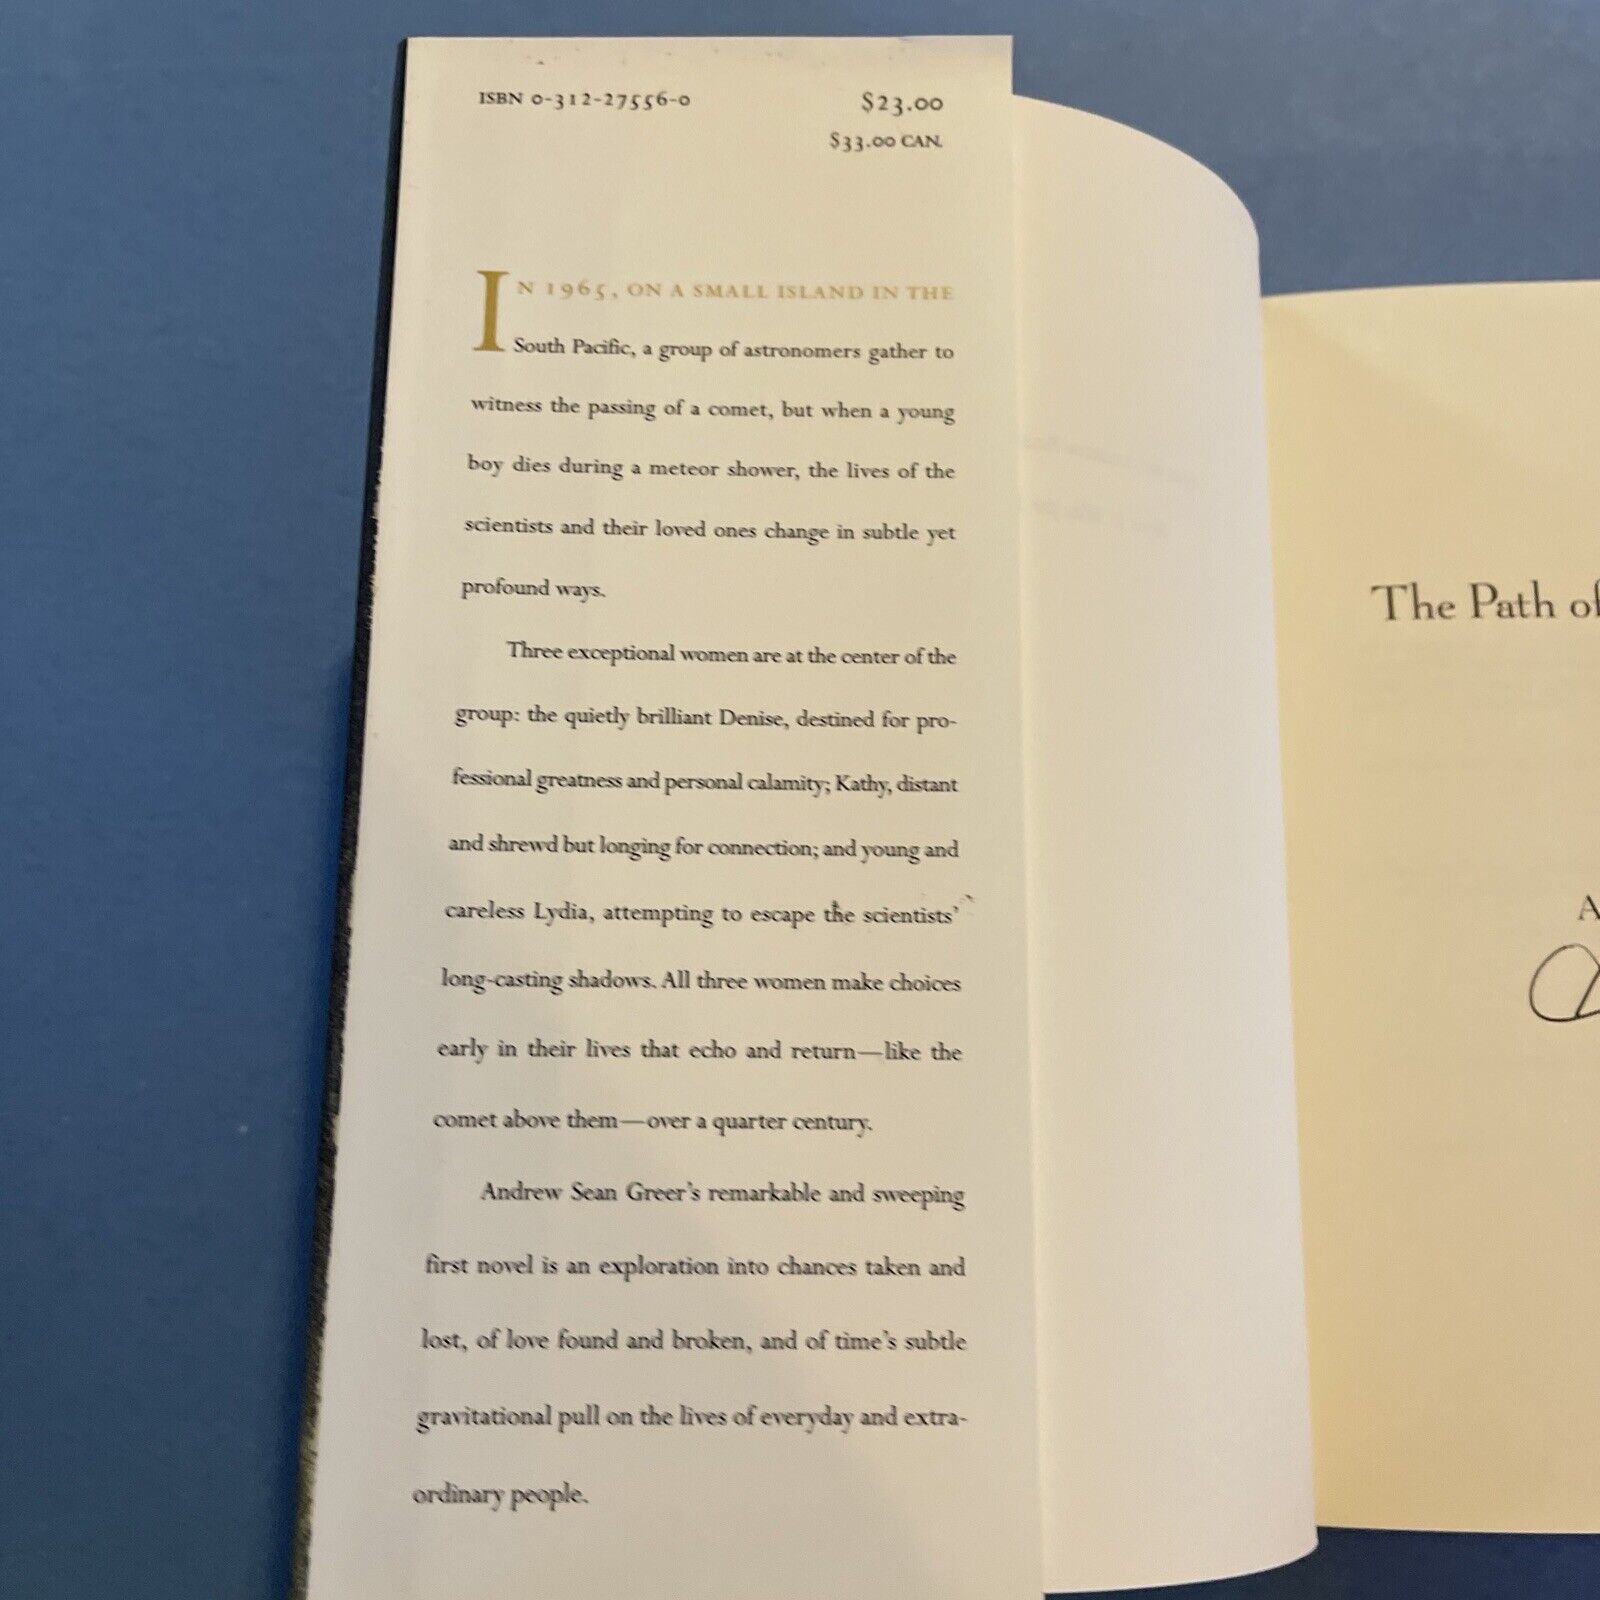 ISBN 0-312-27556-0
$23.00
$33.00 CAN.
IN 1965, ON A SMALL ISLAND IN THE
South Pacific, a group of astronomers gather to
witness the passing of a comet, but when a young
boy dies during a meteor shower, the lives of the
scientists and their loved ones change in subtle yet
profound ways.
Three exceptional women are at the center of the
group: the quietly brilliant Denise, destined for pro-
fessional greatness and personal calamity; Kathy, distant
and shrewd but longing for connection; and young and
careless Lydia, attempting to escape the scientists'
long-casting shadows. All three women make choices
early in their lives that echo and return—like the
comet above them—over a quarter century.
Andrew Sean Greer's remarkable and sweeping
first novel is an exploration into chances taken and
lost, of love found and broken, and of time's subtle
gravitational pull on the lives of everyday and extra-
ordinary people.
The Path of
A